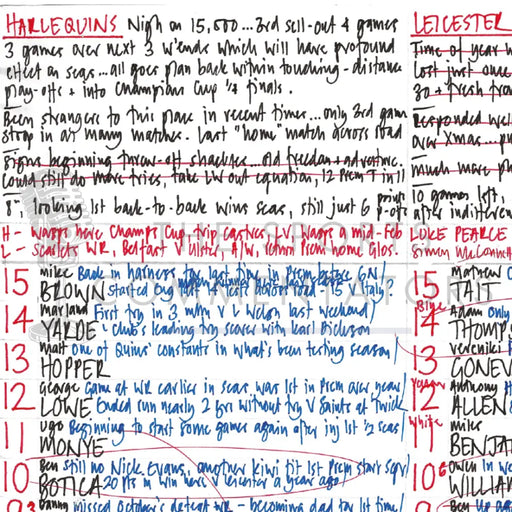 HARLEQUINS Nigh on 15,500...3rd sell-out 4 games
3 games over next 3 w'ends which will have profound
effect on seas...all goes plan back within touching-distance
play-offs + into Champions Cup 1/4 finals.
Been strangers to this place in recent times...only 3rd game
Stoop in as many matches. Last "home" match across road
Signs beginning throw-off shackles...old freedom + adventure.
Could still do more tries, take LW out equation, 12 Prem T in 11
8th, looking 1st back-to-back wins seas, still just 6 points p-offs
H- Wasps here Champs Cup, trip Castres, LV, Wasps A mid-Feb
L- Scarlets WR, Belfast v Ulster, A/W, return Prem home Glos.
15 mike BROWN Back in harness for last time in Prem before 6N
14 marland YARDE First try in 3 mths v L Welsh last weekend
club's leading try scorer with Karl Dickson
13 matt HOPPER one of Quins' constants in what's been testing season
12 george LOWE Game at WR earlier in seas was 1st in Prem over year
Ended run nearly 2 yrs without try v Saints at Twick
11 ugo MONYE Beginning to start some games again after inj 1st 1/2 seas
10 Ben BOTICA still no Nick Evans, another kiwi fit 1st Prem start
20 pts in win here v Leicester a year ago
9 Danny missed October's defeat WR - becoming dad for 1st time
LEICESTER
Time of year
Lost just once
30 + fresh
Responded
over Xmas...
much more
10 games left,
after
LUKE PEARCE
Simon McConnell
15 mathew TAIT
14 Blue Adam THOMPS Only
13 Vereniki GONEV
12 Anthony ALLEN
11 White miles BENJA
10 Owen WILLIA
9 Ben